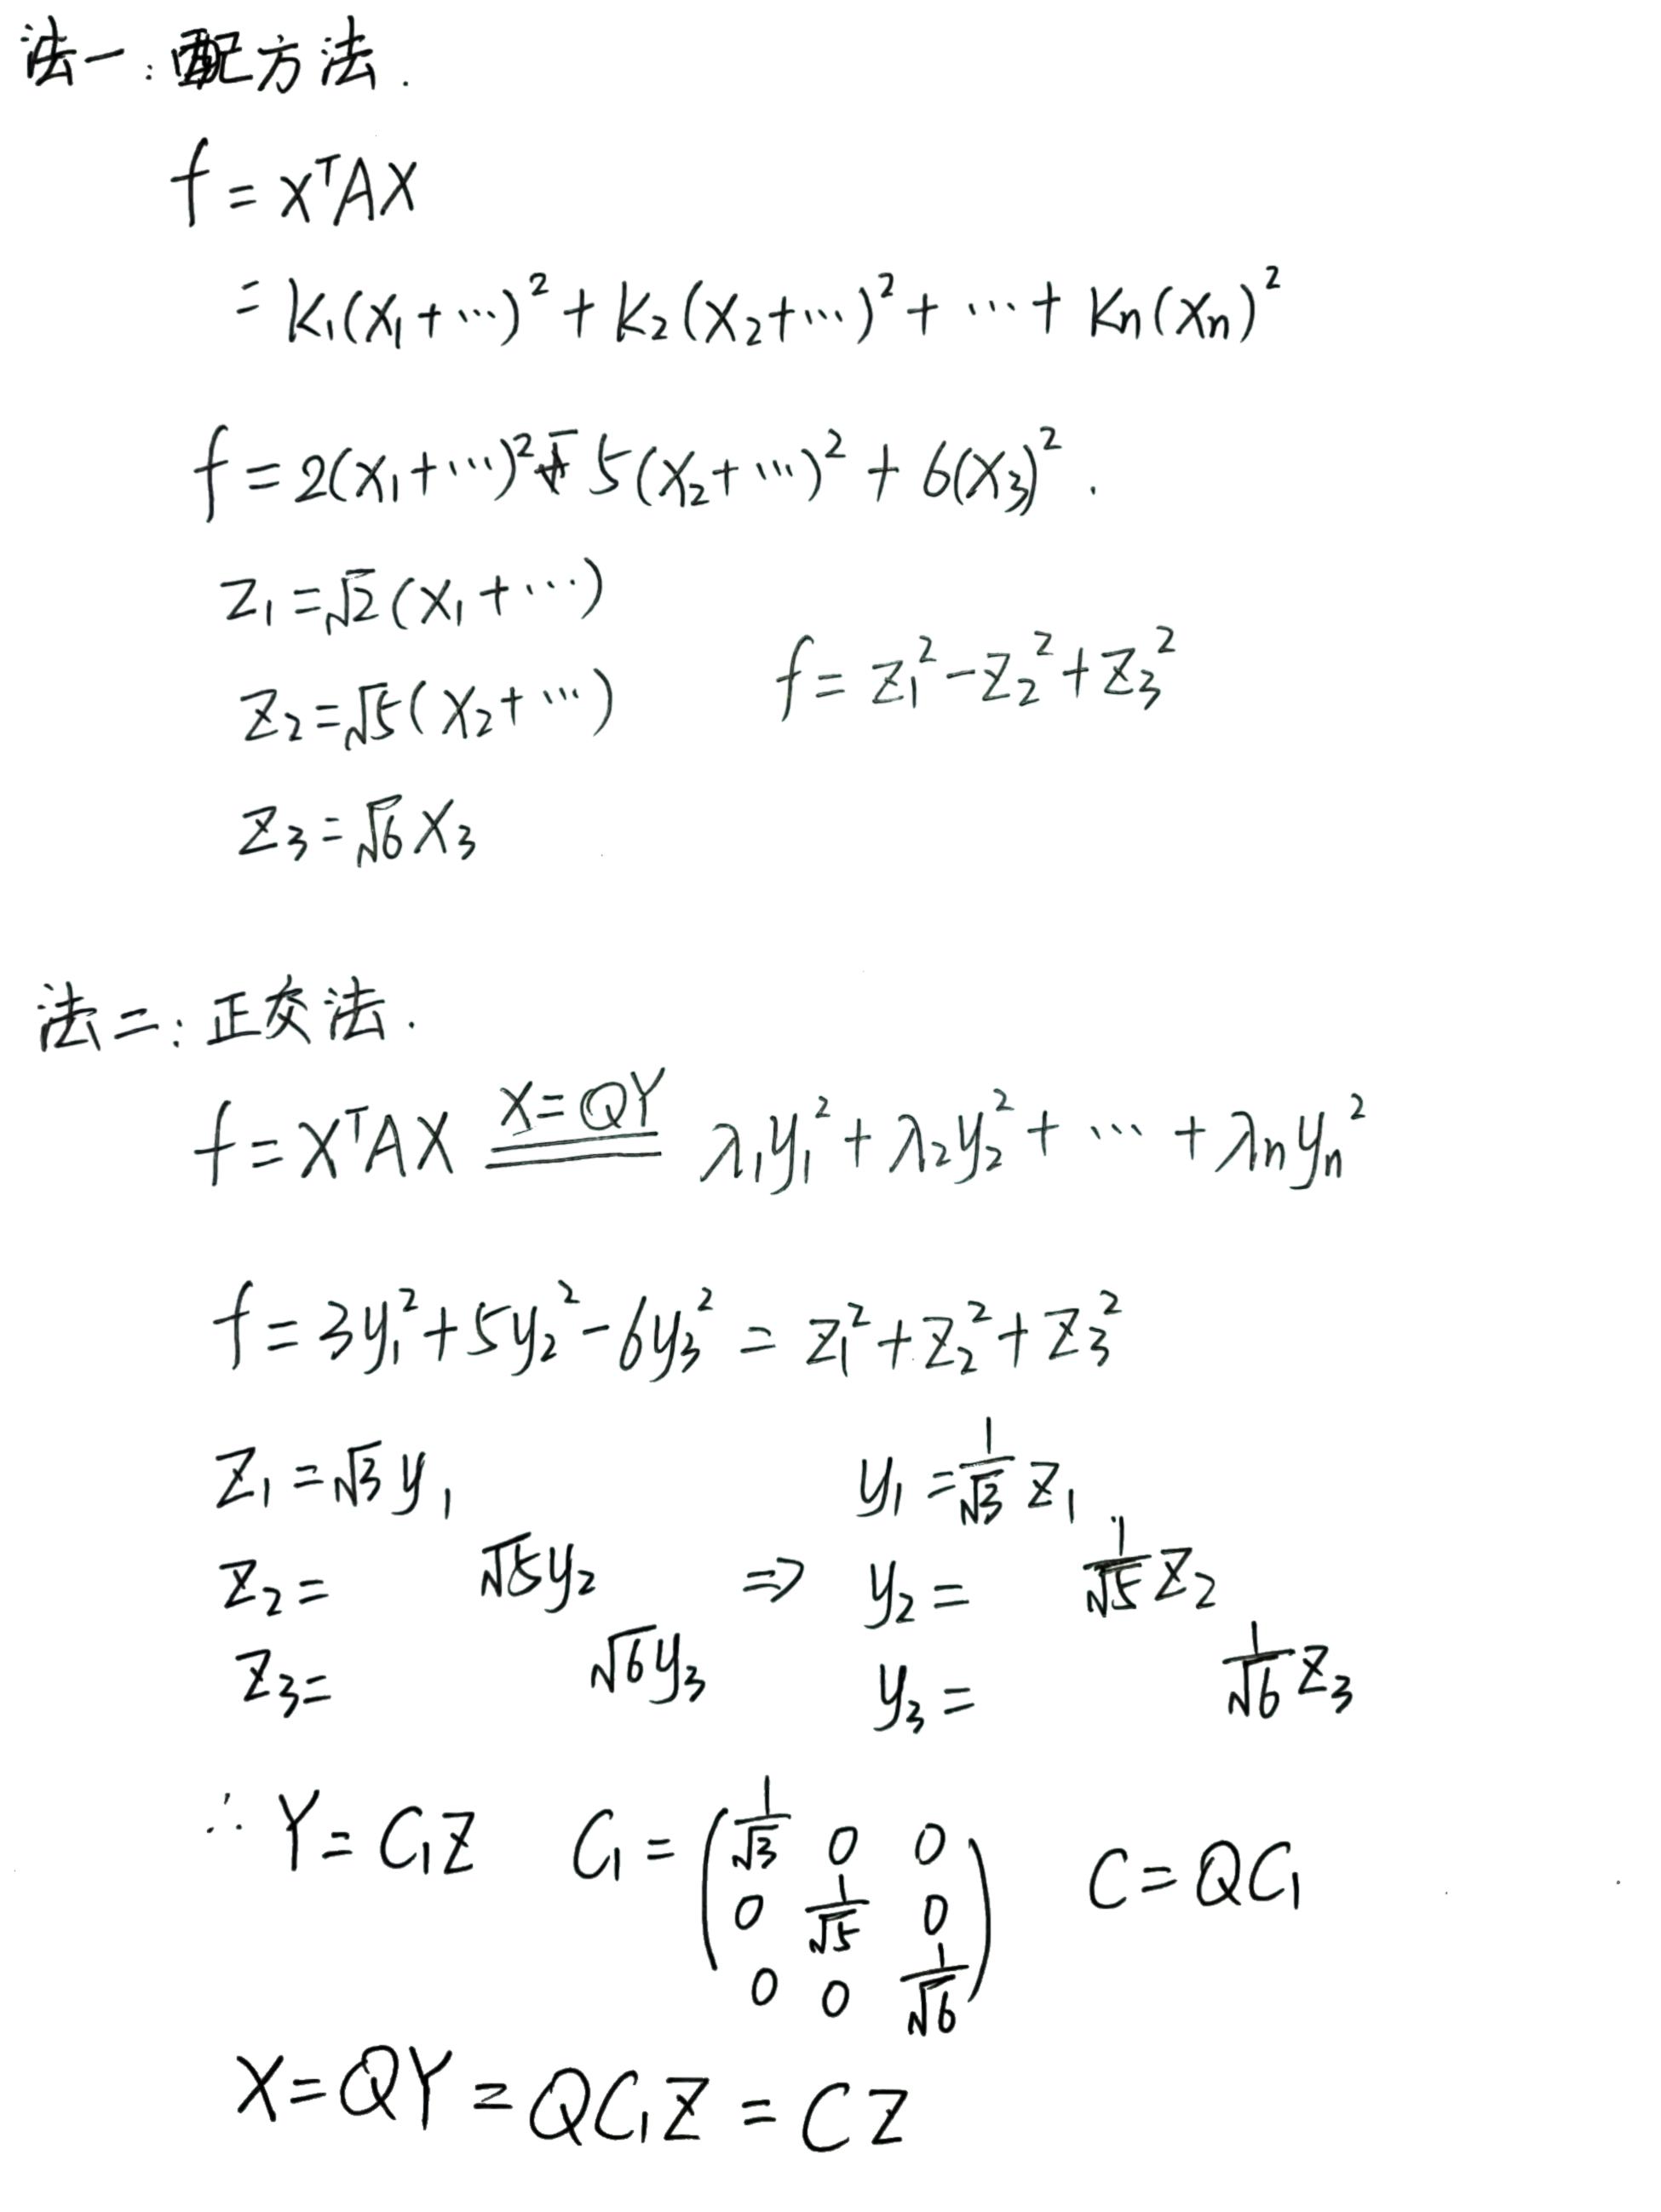 法一:配方法.
f = XᵀAX
= k₁(x₁+⋯)² + k₂(x₂+⋯)² + ⋯ + kn(xn)²
f = 2(x₁+⋯)² - 5(x₂+⋯)² + 6(x₃)².
z₁ = √2(x₁+⋯)
z₂ = √5(x₂+⋯) f = z₁² - z₂² + z₃²
z₃ = √6 x₃
法二:正交法.
f = XᵀAX X=QY λ₁y₁² + λ₂y₂² + ⋯ + λnyn²
f = 3y₁² + 5y₂² - 6y₃² = z₁² + z₂² + z₃²
z₁ = √3 y₁ y₁ = 1/√3 z₁
z₂ = √5 y₂ ⇒ y₂ = 1/√5 z₂
z₃ = √6 y₃ y₃ = 1/√6 z₃
∴ Y = C₁Z C₁ = (1/√3 0 0
0 1/√5 0
0 0 1/√6) C = QC₁
X = QY = QC₁Z = CZ